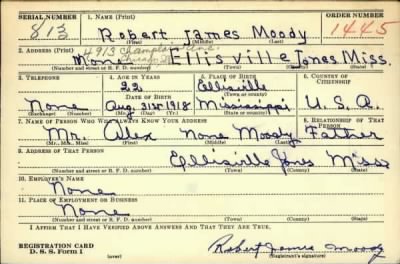 SERIAL NUMBER 1. NAME (Print) ORDER NUMBER
813 Robert James Moody 1445
(First) (Middle) (Last)
2. ADDRESS (Print) 4913 Champlain Ave.
None Ellisville Jones Miss.
(Number and street or R. F. D. number) (Town) (County) (State)
3. TELEPHONE 4. AGE IN YEARS 5. PLACE OF BIRTH 6. COUNTRY OF CITIZENSHIP
22 Ellisville
DATE OF BIRTH (Town or county)
None Aug 31st 1918 Mississippi U. S. A.
(Exchange) (Number) (Mo.) (Day) (Yr.) (State or country)
7. NAME OF PERSON WHO WILL ALWAYS KNOW YOUR ADDRESS 8. RELATIONSHIP OF THAT PERSON
Mr. Alex None Moody Father
(Mr., Mrs., Miss) (First) (Middle) (Last)
9. ADDRESS OF THAT PERSON
Ellisville Jones Miss
(Number and street or R. F. D. number) (Town) (County) (State)
10. EMPLOYER'S NAME
None
11. PLACE OF EMPLOYMENT OR BUSINESS
None
(Number and street or R. F. D. number) (Town) (County) (State)
I AFFIRM THAT I HAVE VERIFIED ABOVE ANSWERS AND THAT THEY ARE TRUE.
REGISTRATION CARD
D. S. S. Form 1 (over) Robert James Moody
(Registrant's signature)